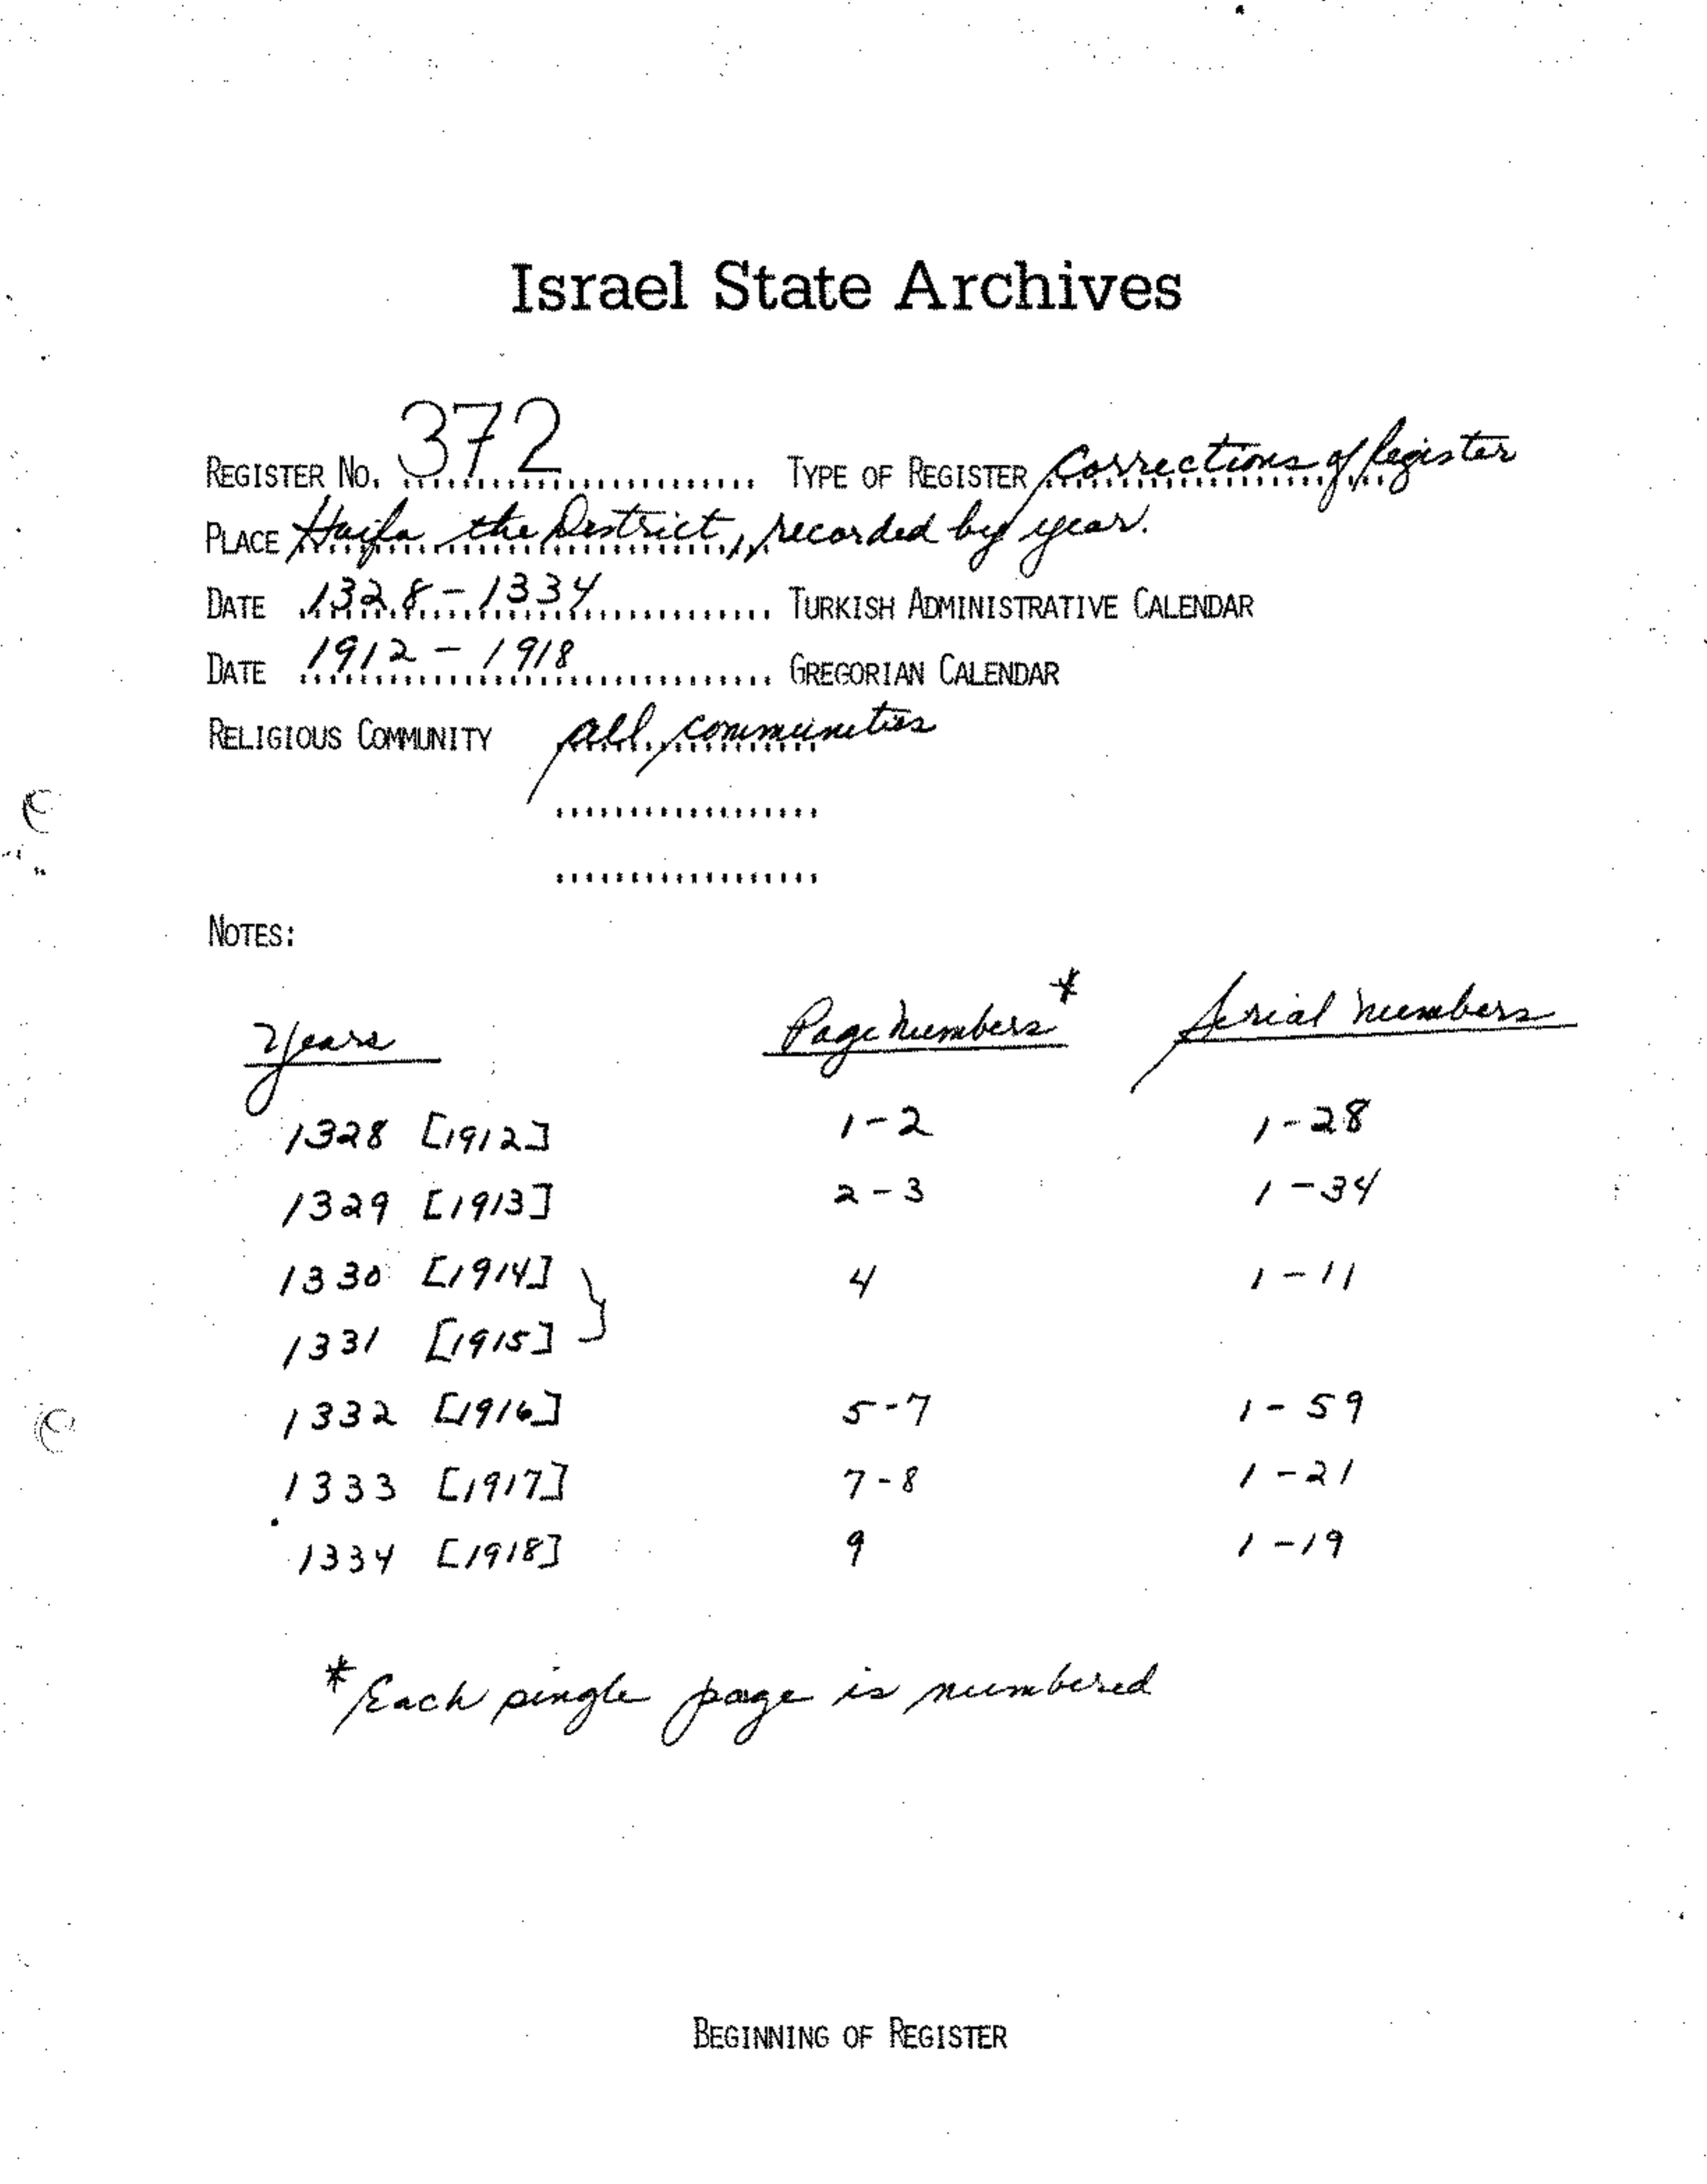 Israel State Archives
REGISTER NO. 372 TYPE OF REGISTER Corrections of Register
PLACE Haifa the District, recorded by year.
DATE 1328-1334 TURKISH ADMINISTRATIVE CALENDAR
DATE 1912-1918 GREGORIAN CALENDAR
RELIGIOUS COMMUNITY all communities
NOTES:
Years Page Numbers* Serial Numbers
1328 [1912] 1-2 1-28
1329 [1913] 2-3 1-34
1330 [1914] } 4 1-11
1331 [1915]
1332 [1916] 5-7 1-59
1333 [1917] 7-8 1-21
1334 [1918] 9 1-19
* Each single page is numbered
BEGINNING OF REGISTER